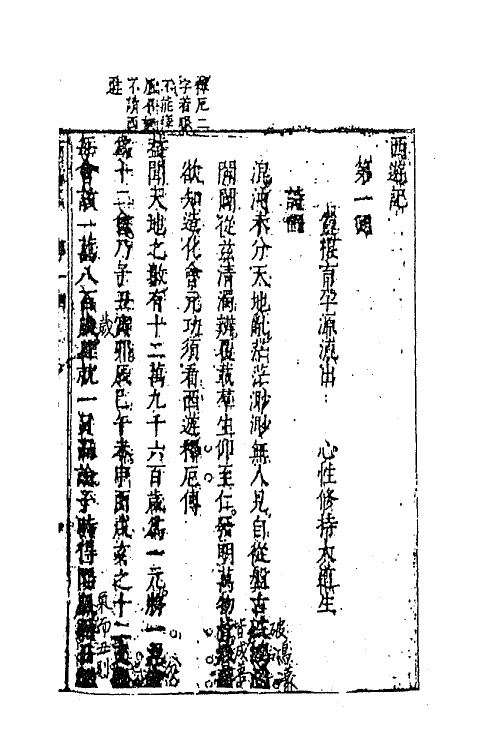 西遊記
第一回
靈根育孕源流出 心性修持大道生
詩曰
混沌未分天地亂茫茫渺渺無人見自從盤古破鴻蒙
開闢從茲清濁辨覆載群生仰至仁發明萬物皆成善
欲知造化會元功須看西遊釋厄傳
蓋聞天地之數有十二萬九千六百歲為一元將一元
為十二會乃子丑寅卯辰巳午未申酉戌亥之十二支
每會該一萬八百歲且就一日而論子時得陽氣
釋厄二
字着眼
不能釋
不讀西